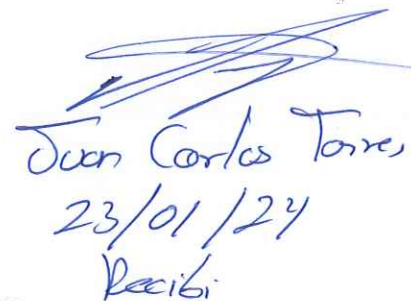 Juan Carlos Torres
23/01/24
Recibi